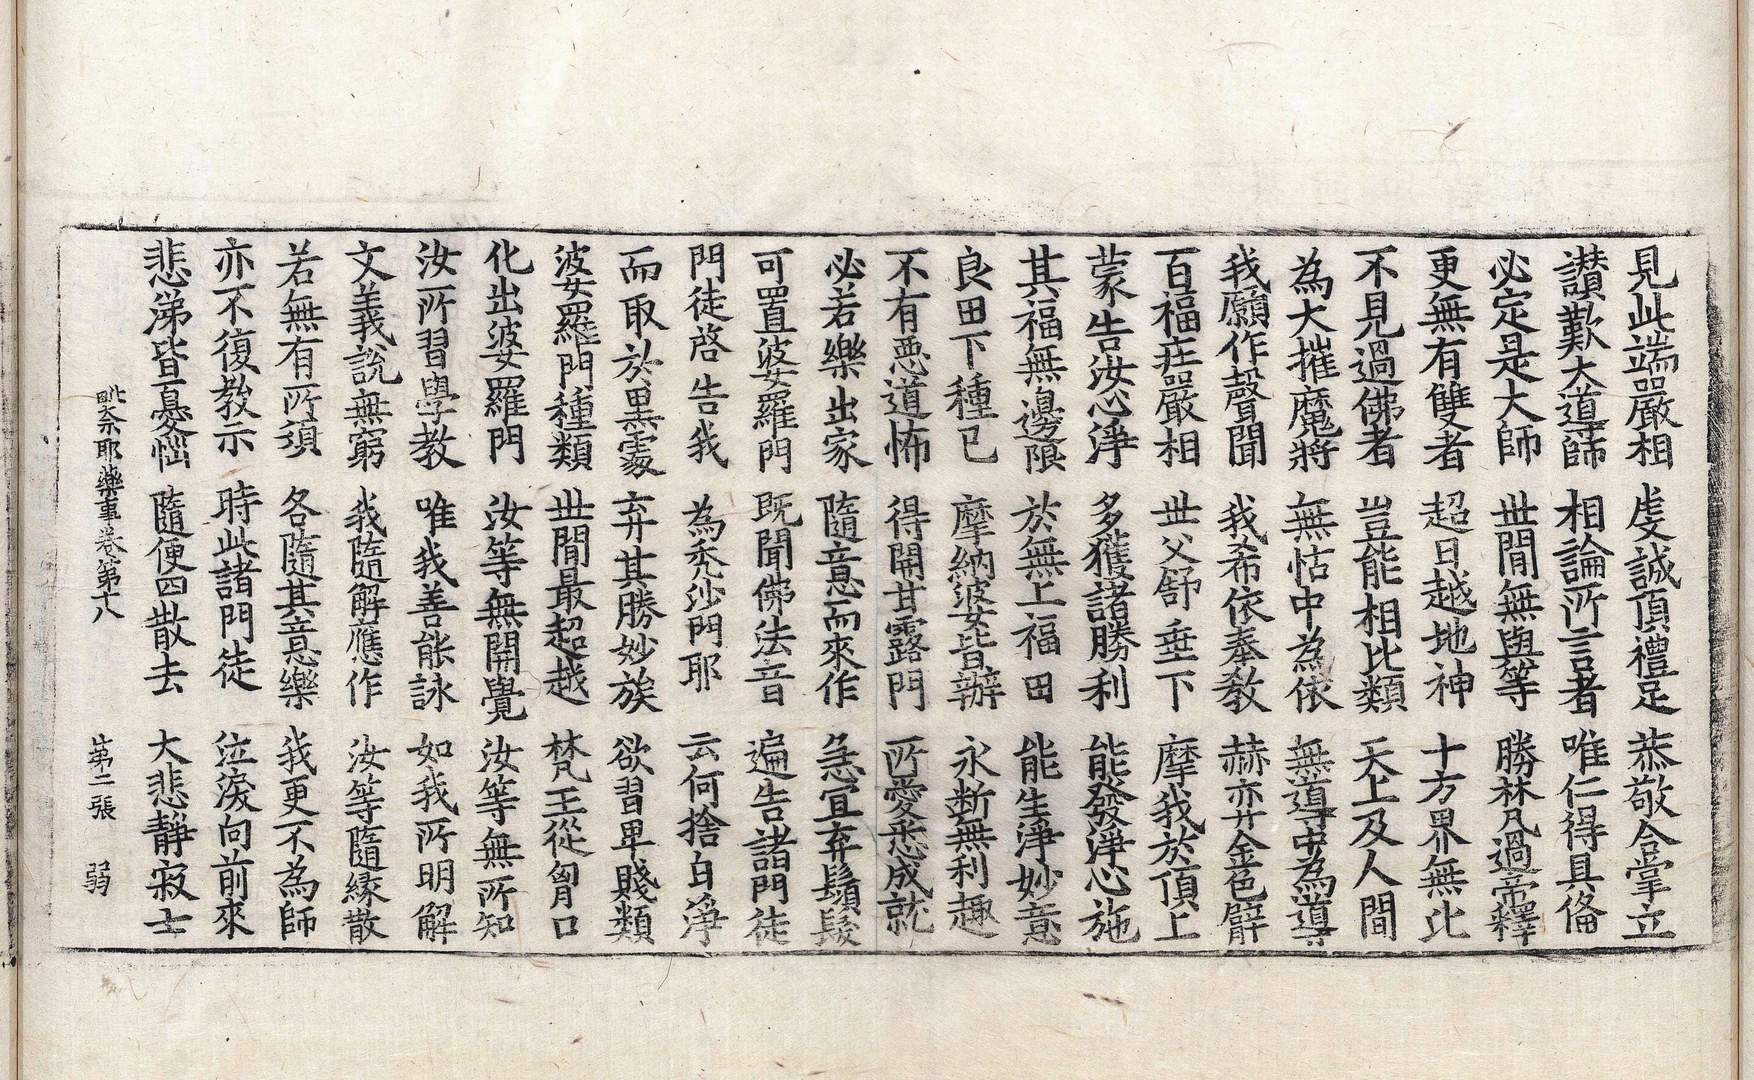 見此端嚴相 虔誠頂禮足 恭敬合掌立
讃歎大道師 相論所言者 唯仁得具偹
必定是大師 世間無與等 勝林凡過帝釋
更無有雙者 超日越地神 十方界無比
不見過佛者 豈能相比類 天上及人間
為大摧魔將 無怙中為依 無導中為導
我願作聲聞 我希依奉教 赫弈金色臂
百福莊嚴相 世父舒垂下 摩我於頂上
蒙告汝心淨 多獲諸勝利 能發淨心施
其福無邊限 於無上福田 能生淨妙意
良田下種已 摩納婆皆辦 永断無利趣
不有惡道怖 得開甘露門 所愛悉成就
必若樂出家 隨意而來作 急宜弃鬚髮
可置婆羅門 既聞佛法音 遍告諸門徒
門徒啓告我 為禿沙門耶 云何捨白淨
而取於黒雲 弃其勝妙族 欲習卑賤類
婆羅門種類 世間最超越 梵王從匈口
化出婆羅門 汝等無開覺 汝等無所知
汝所習學教 唯我善能詠 如我所明解
文義說無窮 我隨解應作 汝等隨緣散
若無有所須 各隨其意樂 我更不為師
亦不復教示 時此諸門徒 泣淚向前來
悲涕皆憂惱 隨便四散去 大悲靜寂士
毗奈耶藥事卷第十八 第二張 弱